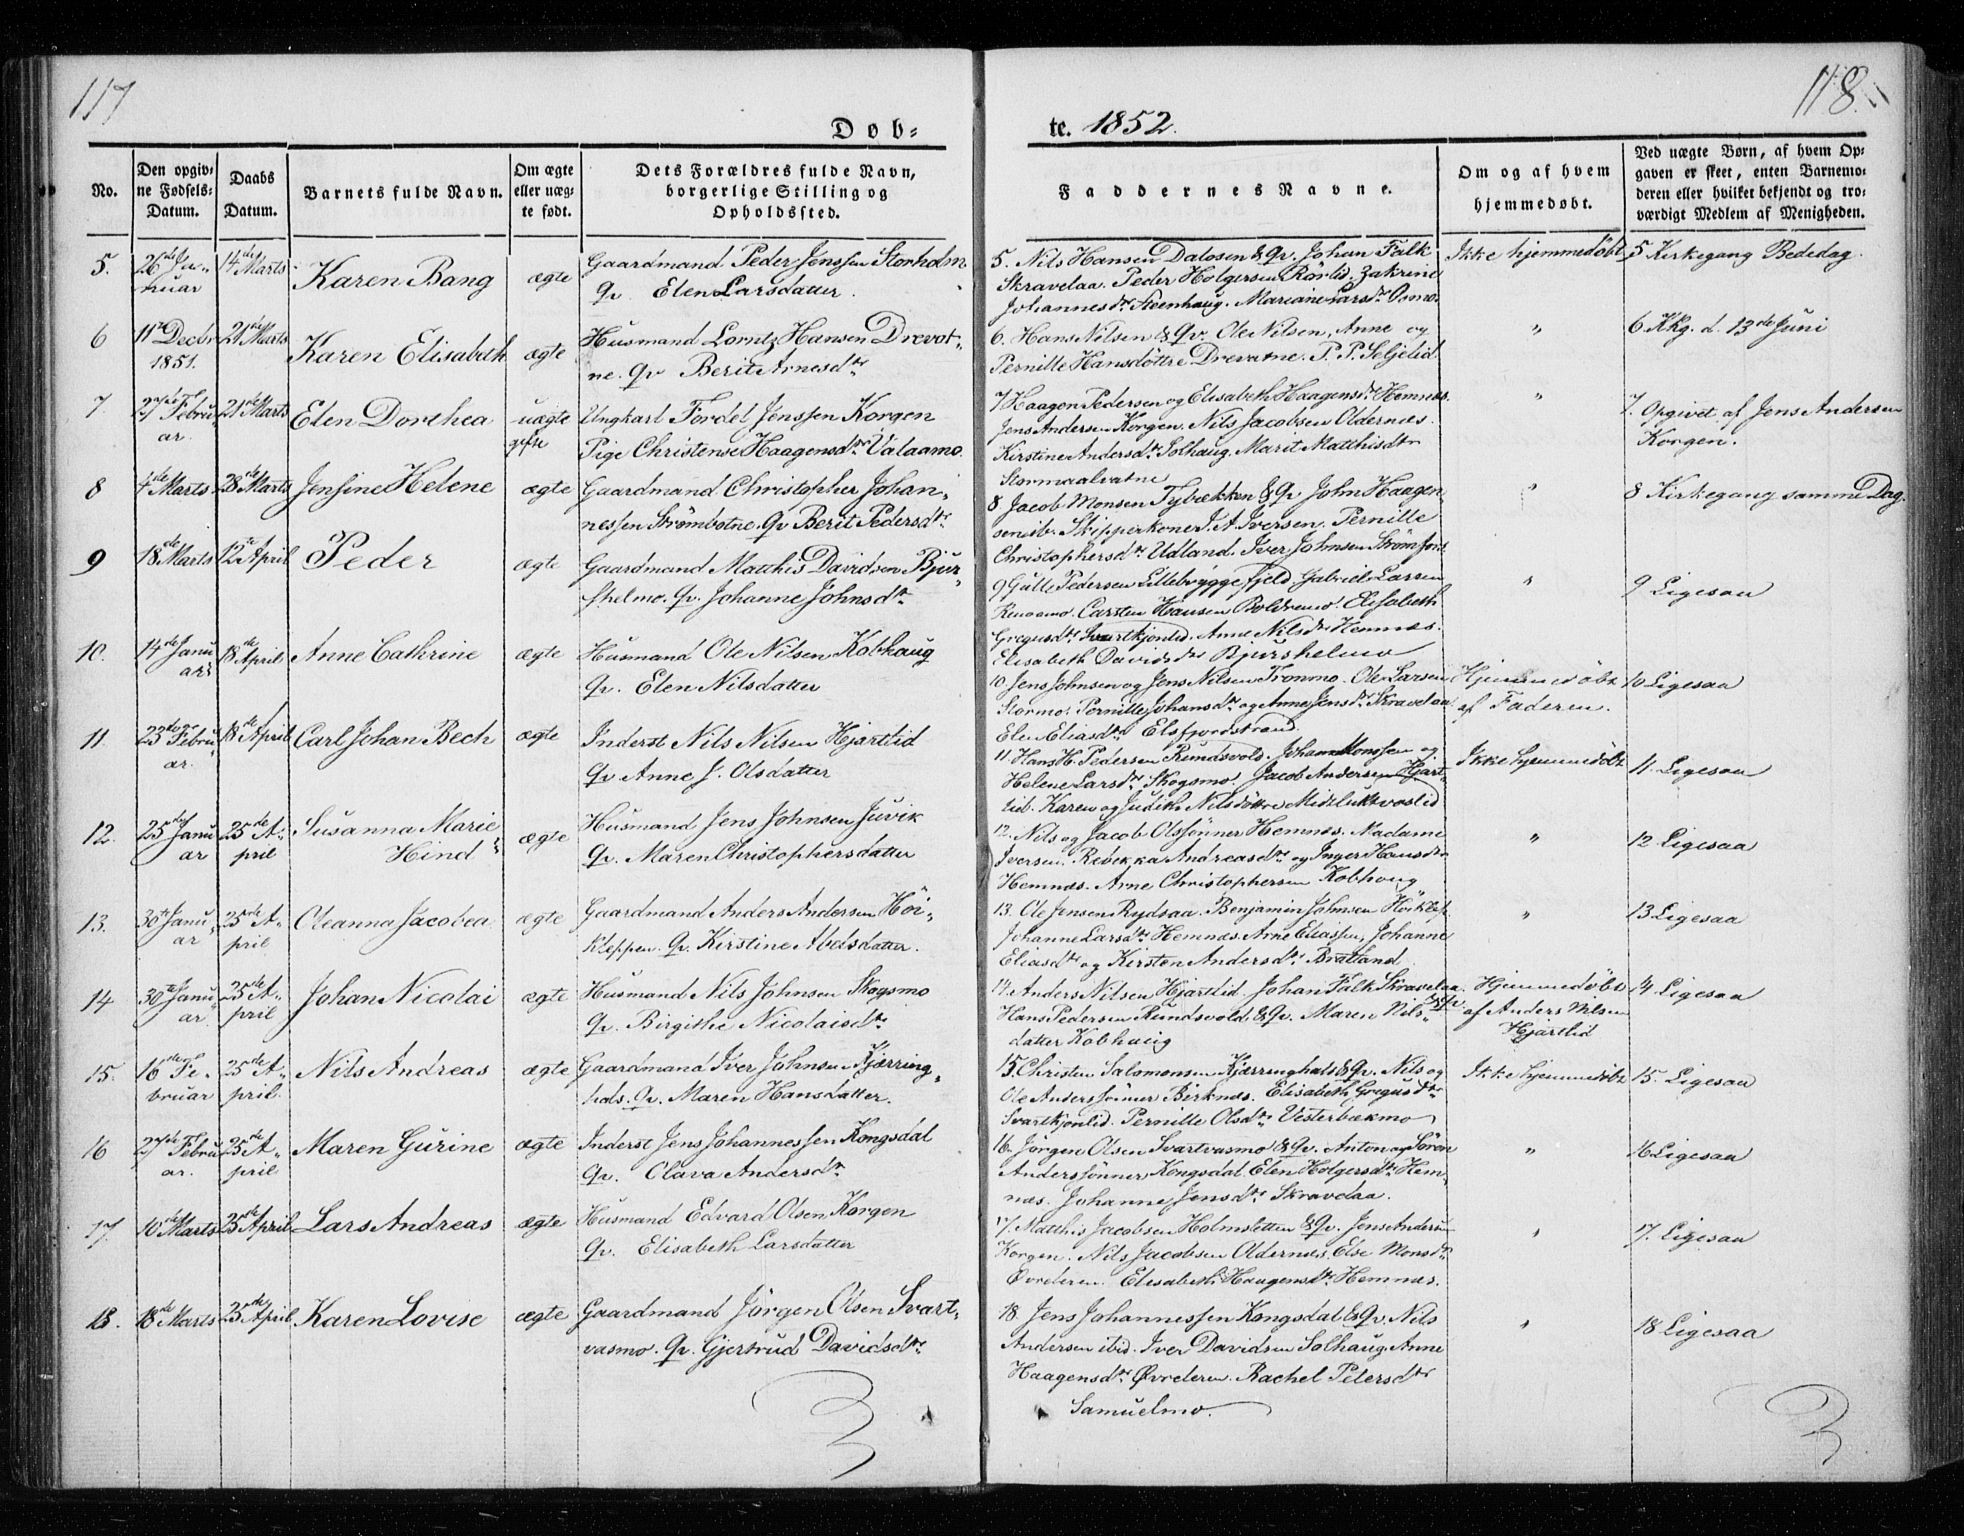 117
118.
Døb=
te. 1852.
No.
Den opgiv=
ne Fødsels=
Datum.
Daabs
Datum.
Barnets fulde Navn.
Om ægte
eller uæg=
te født.
Dets Forældres fulde Navn,
borgerlige Stilling og
Opholdssted.
Faddernes Navne.
Om og af hvem
hjemmedøbt.
Ved uægte Børn, af hvem Op=
gaven er skeet, enten Barnemo=
deren eller hvilket bekjendt og tro=
værdigt Medlem af Menigheden.
5. 26de Ja„ 14de Marts Karen Bang ægte Gaardmand Peder Jenssen Storholm
nuar Qv. Elen Larsdatter.
5. Nils Hansen Dalosen & Qv. Johan Falk
Skravelaa. Peder Holgersen Rørlid. Zakrine
Johannesdr Steenhaug. Mariane Larsdr Osmo.
Ikke hjemmedöbt
5 Kirkegang Bededag.
6 11te Decbr 21de Marts Karen Elisabeth ægte Husmand Lorntz Hansen Drevat„
1851. ne. Qv Berit Arnesdtr
6. Hans Nilsen & Qv. Ole Nilsen, Anne og
Pernille Hansdöttre Drevatne. P. P. Seljelid
"
6 Kkg. d. 13de Juni
7 27de Febru„ 21de Marts Elen Dorthea uægte Ungkarl Fordel Jenssen Korgen
ar. Pige Christense Haagensdtr Valaamo.
7 Haagen Pedersen og Elisabeth Haagensdr Hemnæs.
Jens Andersen Korgen. Nils Jacobsen Oldernæs.
Kirstine Andersdtr Solhaug. Marit Matthisdtr
Stormaalvatne
"
7. Opgivet af Jens Andersen
Korgen.
8 4de Marts 28de Marts Jensine Helene ægte Gaardmand Christopher Johan„
nessen Strömbotne. Qv Berit Pedersdtr
8 Jacob Monsen Tybækken & Qv John Haagen
sen ib. Skipperkone J. A. Iversen. Pernille
Christophersdtr Udland. Iver Johnsen Strömfors
"
8 Kirkegang samme Dag.
9 18de Marts 12te April Peder ægte Gaardmand Matthis Davidsen Bjur„
shelmo. Qv. Johanne Johnsdtr
9 Gulle Pedersen Lillebryggefjeld Gabriel Larsen
Carsten Hansen Boldremo. Elisabeth
Gregusdtr Svartkjønlid. Anne Nilsdr Hemnæs.
Elisabeth Davidsdr Bjurshelmo
"
9 Ligesaa
10. 14de Janu„ 18de April Anne Cathrine ægte Husmand Ole Nilsen Kobhaug
ar Qv. Elen Nilsdatter
10. Jens Johnsen og Jens Nilsen Tronmo. Ole Larsen
Stormo. Pernille Johansdtr og Anne Jensdtr Skravelaa
Elen Eliasdtr Elsfjordstrand.
Hjemmedöbt
af Faderen.
10 Ligesaa
11. 23de Febru„ 18de April Carl Johan Bech ægte Inderst Nils Nilsen Hjartlid
ar. Qv Anne J. Olsdatter
11. Hans H. Pedersen Rundsvold. Johan Monssen og
Helene Larsdtr Skogsmo. Jacob Andersen Hjart„
lid. Karen og Judith Nilsdöttre Midtlukvaslid
Ikke hjemmedöbt
11. Ligesaa
12. 25de Janu„ 25de A„ Susanna Marie ægte Husmand Jens Johnsen Juvik
ar pril Hind„ Qv. Maren Christophersdatter
12. Nils og Jacob Olssønner Hemnæs. Madame
Iversen. Rebekka Andreasdtr og Inger Hansdtr
Hemnæs. Arne Christophersen Kobhoug
"
12 Ligesaa
13. 30te Janu„ 25de A„ Oleanna Jacobea ægte Gaardmand Anders Andersen Höi„
ar pril kleppen. Qv. Kirstine Abelsdatter.
13. Ole Jensen Rydsaa. Benjamin Johnsen Höiklep.
Johanne Larsdtr Hemnæs. Arne Eliassen, Johanne
Eliasdtr og Kirsten Andersdtr Bratland
"
13 Ligesaa
14 30te Janu„ 25de A„ Johan Nicolai ægte Husmand Nils Johnsen Skogsmo
ar. pril Qv. Birgithe Nicolaisdtr
14. Anders Nilsen Hjartlid. Johan Falk Skravelaa.
Hans Pedersen Rundsvold & Qv. Maren Nils„
datter Kobhaug
Hjemmedöbt
af Anders Nilsen
Hjartlid
14 Ligesaa
15. 16de Fe„ 25de A„ Nils Andreas ægte Gaardmand Iver Johnsen Kjærring„
bruar pril. hals. Qv. Maren Hansdatter.
15 Christen Salomonsen Kjærringhals & Qv. Nils og
Ole Anderssönner Birknæs. Elisabeth Gregusdtr
Svartkjønlid. Pernille Olsdtr Vesterbækmo
Ikke hjemmedöbt
15. Ligesaa
16 27de Febru 25de A„ Maren Gurine ægte Inderst Jens Johannessen Kongsdal
ar. pril Qv. Olava Andersdtr
16. Jørgen Olsen Svartvasmo & Qv. Anton og Sören
Anderssönner Kongsdal. Elen Holgersdtr Hem„
næs. Johanne Jensdtr Skravelaa.
"
16 Ligesaa
17. 10de Marts 25de April Lars Andreas ægte Husmand Edvard Olsen Korgen
Qv. Elisabeth Larsdatter
17 Matthis Jacobsen Holmsletten & Qv. Jens Andersen
Korgen. Nils Jacobsen Oldernæs. Else Monsdtr
Øvrderen. Elisabeth Haagensdtr Hemnæs.
"
17. Ligesaa
18. 18de Marts 25de April Karen Lovise ægte Gaardmand Jörgen Olsen Svart„
vasmo. Qv. Gjertrud Davidsdtr
18. Jens Johannessen Kongsdal & Qv. Nils
Andersen ibid. Iver Davidsen Solhaug. Anne
Haagensdtr Øvrderen. Rachel Petersdtr
Samuelmo.
"
18 Ligesaa